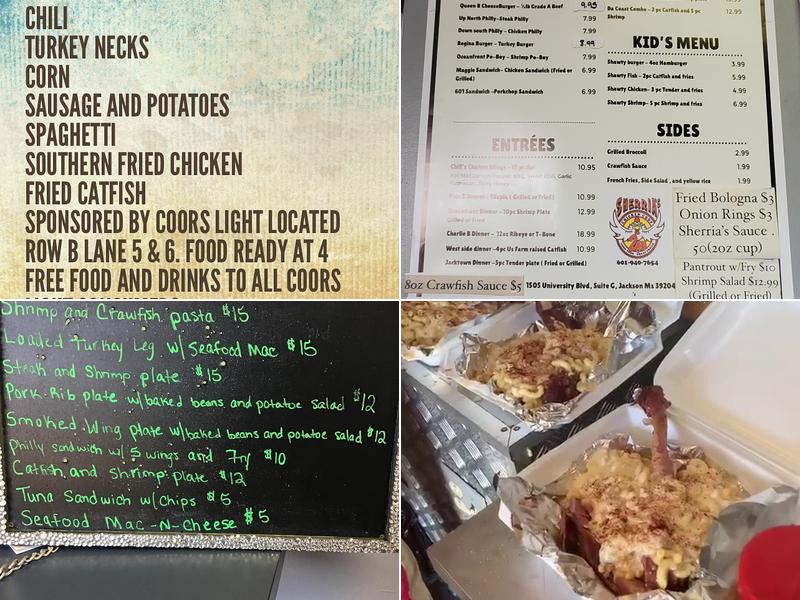 CHILI
TURKEY NECKS
CORN
SAUSAGE AND POTATOES
SPAGHETTI
SOUTHERN FRIED CHICKEN
FRIED CATFISH
SPONSORED BY COORS LIGHT LOCATED
ROW B LANE 5 & 6. FOOD READY AT 4
FREE FOOD AND DRINKS TO ALL COORS
Queen B CheeseBurger - ½lb Grade A Beef 9.95
Up North Philly-Steak Philly 7.99
Down south Philly - Chicken Philly 7.99
Regina Burger - Turkey Burger 8.99
Oceanfront Po-Boy - Shrimp Po-Boy 7.99
Maggie Sandwich- Chicken Sandwich (Fried or Grilled) 6.99
601 Sandwich -Porkchop Sandwich 6.99
ENTRÉES
10.95
10.99
Dinner - 10pc Shrimp Plate 12.99
Grilled or Fried
Charlie B Dinner - 12oz Ribeye or T-Bone 18.99
West side dinner -4pc Us Farm raised Catfish 10.99
Jacktown Dinner -5pc Tender plate ( Fried or Grilled)
8oz Crawfish Sauce $5
Da Coast Combo - 2 pc Catfish and 5 pc Shrimp
KID'S MENU
Shawty burger - 4oz Hamburger 3.99
Shawty Fish - 2pc Catfish and fries 5.99
Shawty Chicken- 3 pc Tender and fries 4.99
Shawty Shrimp- 5 pc Shrimp and fries 6.99
SIDES
Grilled Broccoli 2.99
Crawfish Sauce 1.99
French Fries, Side Salad , and yellow rice 1.99
SHERRIA'S
601-940-7654
Fried Bologna $3
Onion Rings $3
Sherria's Sauce .
50(2oz cup)
Pantrout w/Fry $10
Shrimp Salad $12.99
(Grilled or Fried)
1505 University Blvd, Suite G, Jackson Ms 39204
Shrimp and Crawfish pasta $15
Loaded Turkey Leg w/ Seafood Mac $15
Steak and Shrimp plate $15
Pork Rib plate w/baked beans and potatoe salad $12
Smoked Wing plate w/baked beans and potatoe salad $12
Philly sandwich w/ 5 wings and Fry $10
Catfish and Shrimp plate $12
Tuna Sandwich w/chips $5
Seafood Mac-N-Cheese $5